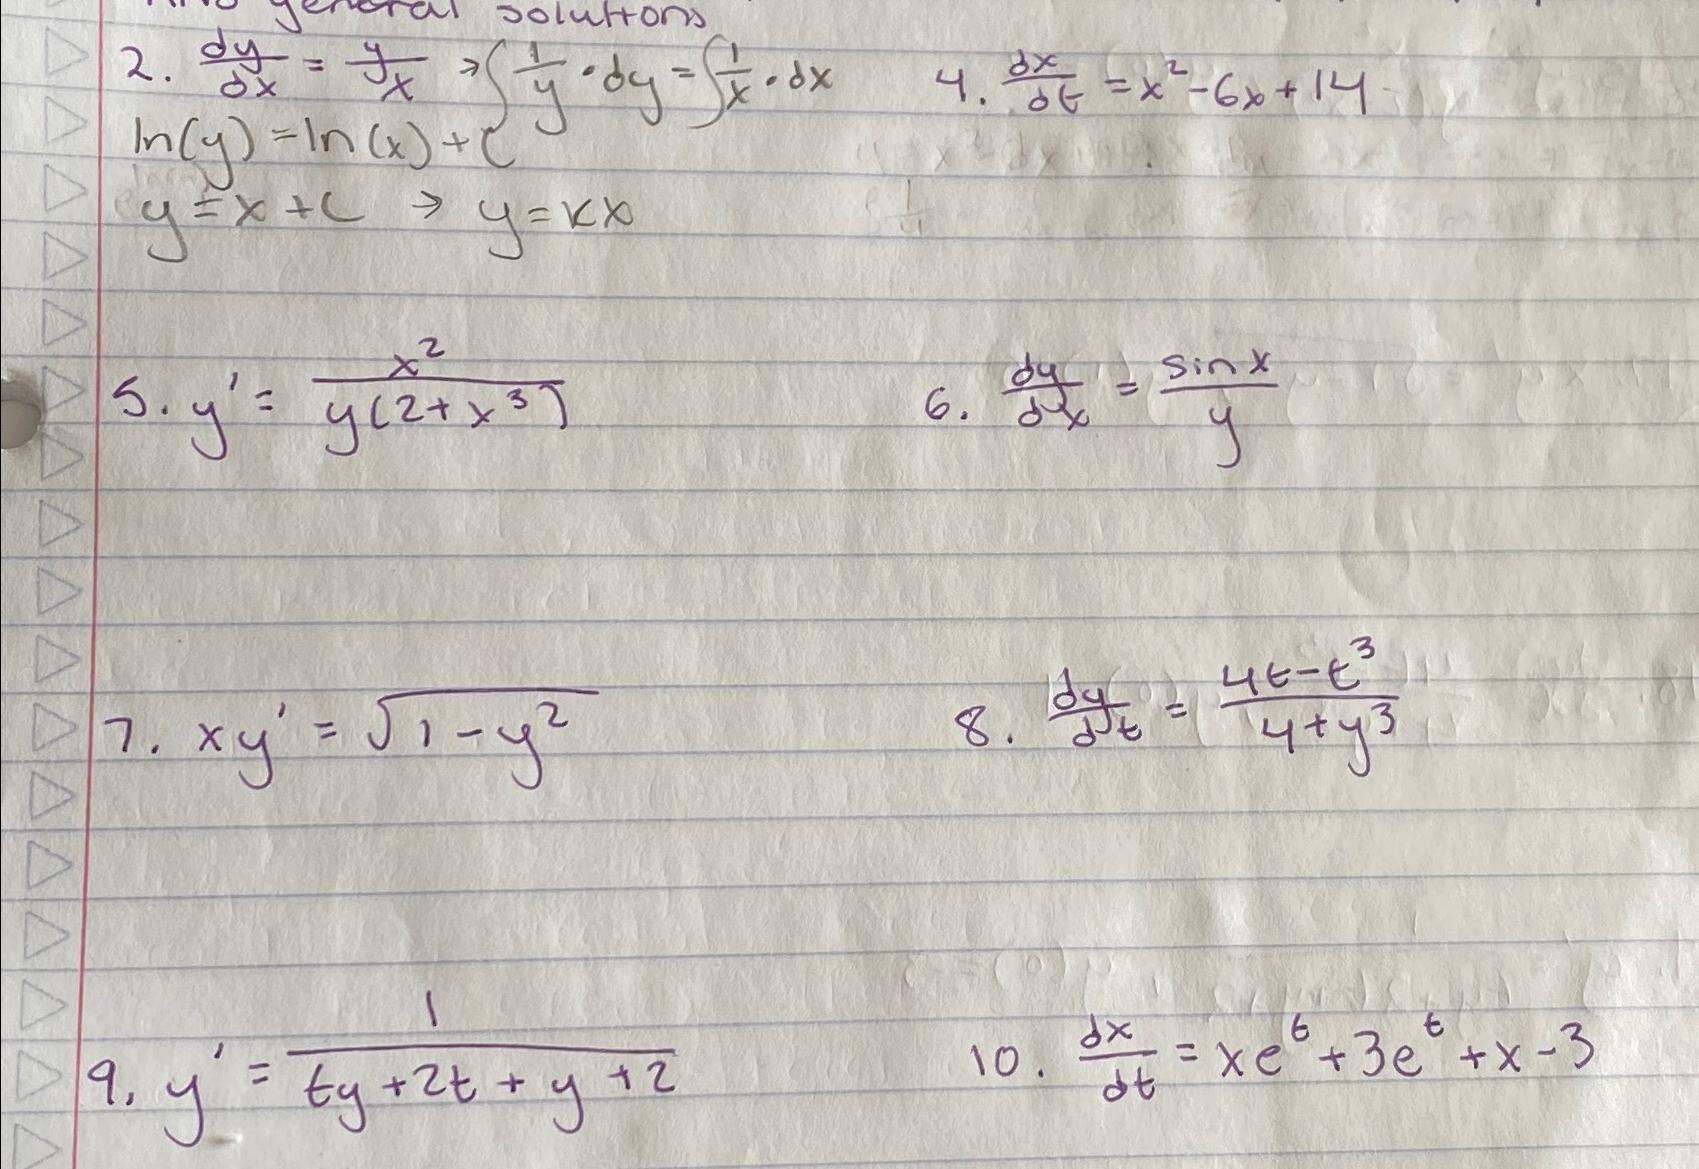 general solutions
2. dy/dx = y/x → ∫ 1/y · dy = ∫ 1/x · dx
ln(y) = ln(x) + C
y = x + C → y = kx
4. dx/dt = x² - 6x + 14
5. y' = x² / y(2 + x³)
6. dy/dx = sin x / y
7. xy' = √(1 - y²)
8. dy/dt = 4t - t³ / 4 + y³
9. y' = 1 / ty + 2t + y + 2
10. dx/dt = xeᵗ + 3eᵗ + x - 3